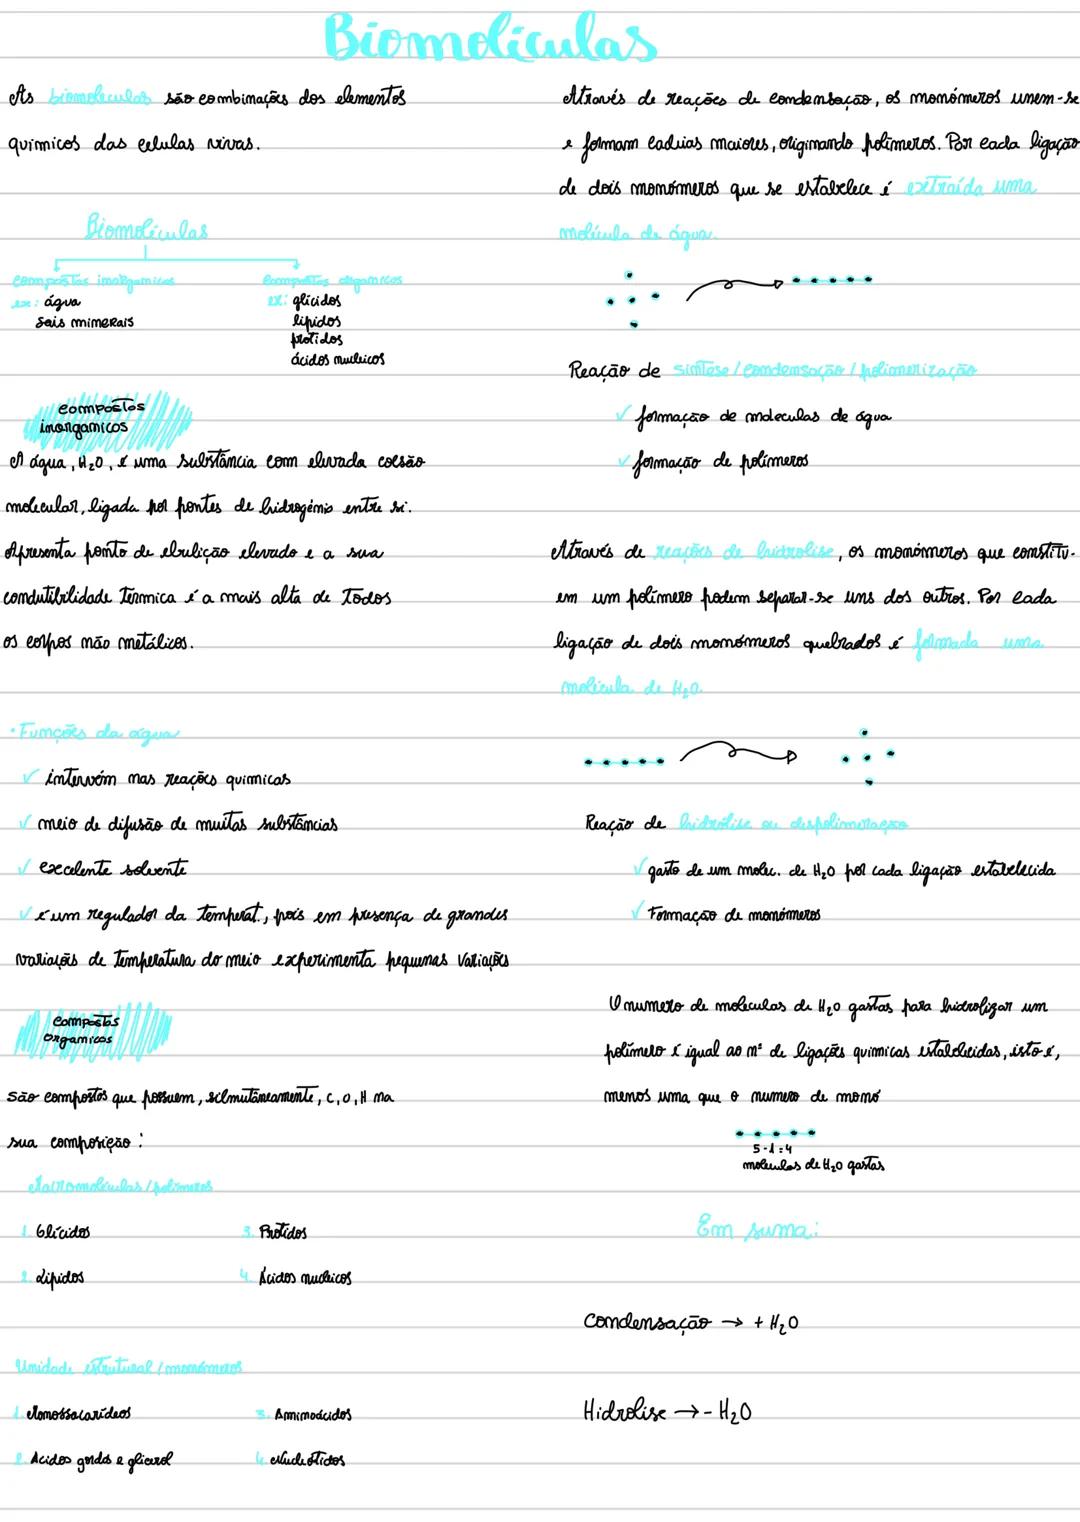 Biomolículas
As biomoleculas são combinações dos elementos
quimicos das celulas vivas.
Biomoléculas
compostos inorgamicos
ex: água
Sais minerais
Compostos orgamicos
ex: glícidos
lipidos
protidos
ácidos nucleicos
compostos
inorgamicos
A água, H₂O, é uma substância com elevada coesão
molecular, ligada por pontes de hidrogénio entre si.
Apresenta ponto de ebulição elevado e a sua
condutibilidade termica é a mais alta de todos
os corpos não metálicos.
• Funções da água
✓ intervém nas reações quimicas
✓ meio de difusão de muitas substâncias
✓ excelente solvente
✓ é um regulador da temperat., pois em presença de grandes
variações de temperatura do meio experimenta pequenas variações
compostos
orgamicos
são compostos que possuem, silmutâneamente, C, O, H na
sua composição:
Macromoléculas / polimeros
1. Glícidos
2. Lipidos
3. Protidos
4. Ácidos nucleicos
Unidade estrutural / monómeros
1. Monossacarídeos
2. Acidos gordos e glicerol
3. Aminoácidos
4. Nucleotidos
Através de reações de condensação, os monómeros unem-se
e formam cadeias maiores, originando polimeros. Por cada ligação
de dois monómeros que se estabelece é extraída uma
molécula de água.
Reação de sintese / condensação / polimerização
✓ formação de moleculas de água
✓ formação de polímeros
Através de reações de hidrolise, os monómeros que constitu-
em um polímero podem separar-se uns dos outros. Por cada
ligação de dois monómeros quebrados é formada uma
molécula de H₂O.
Reação de hidrólise ou despolimeração
✓ gasto de um molec. de H₂O por cada ligação estabelecida
✓ Formação de monómeros
O numero de moleculas de H₂O gastas para hidrolizar um
polímero é igual ao nº de ligações quimicas estabelecidas, isto é,
menos uma que o numero de monó
5-1=4
moleculas de H₂O gastas
Em suma:
Condensação → + H₂O
Hidrolise → - H₂O